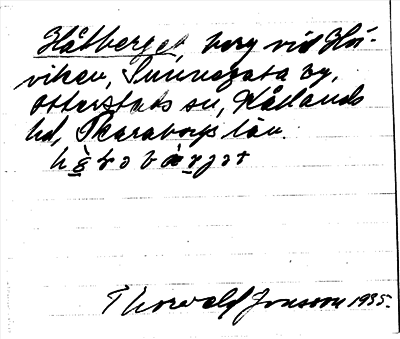 Håtberget, berg vid Hå-
viken, Sunnersta by,
Otterstads sn, Kållands
hd, Skaraborgs län.
Thorvald Jonsson 1935.